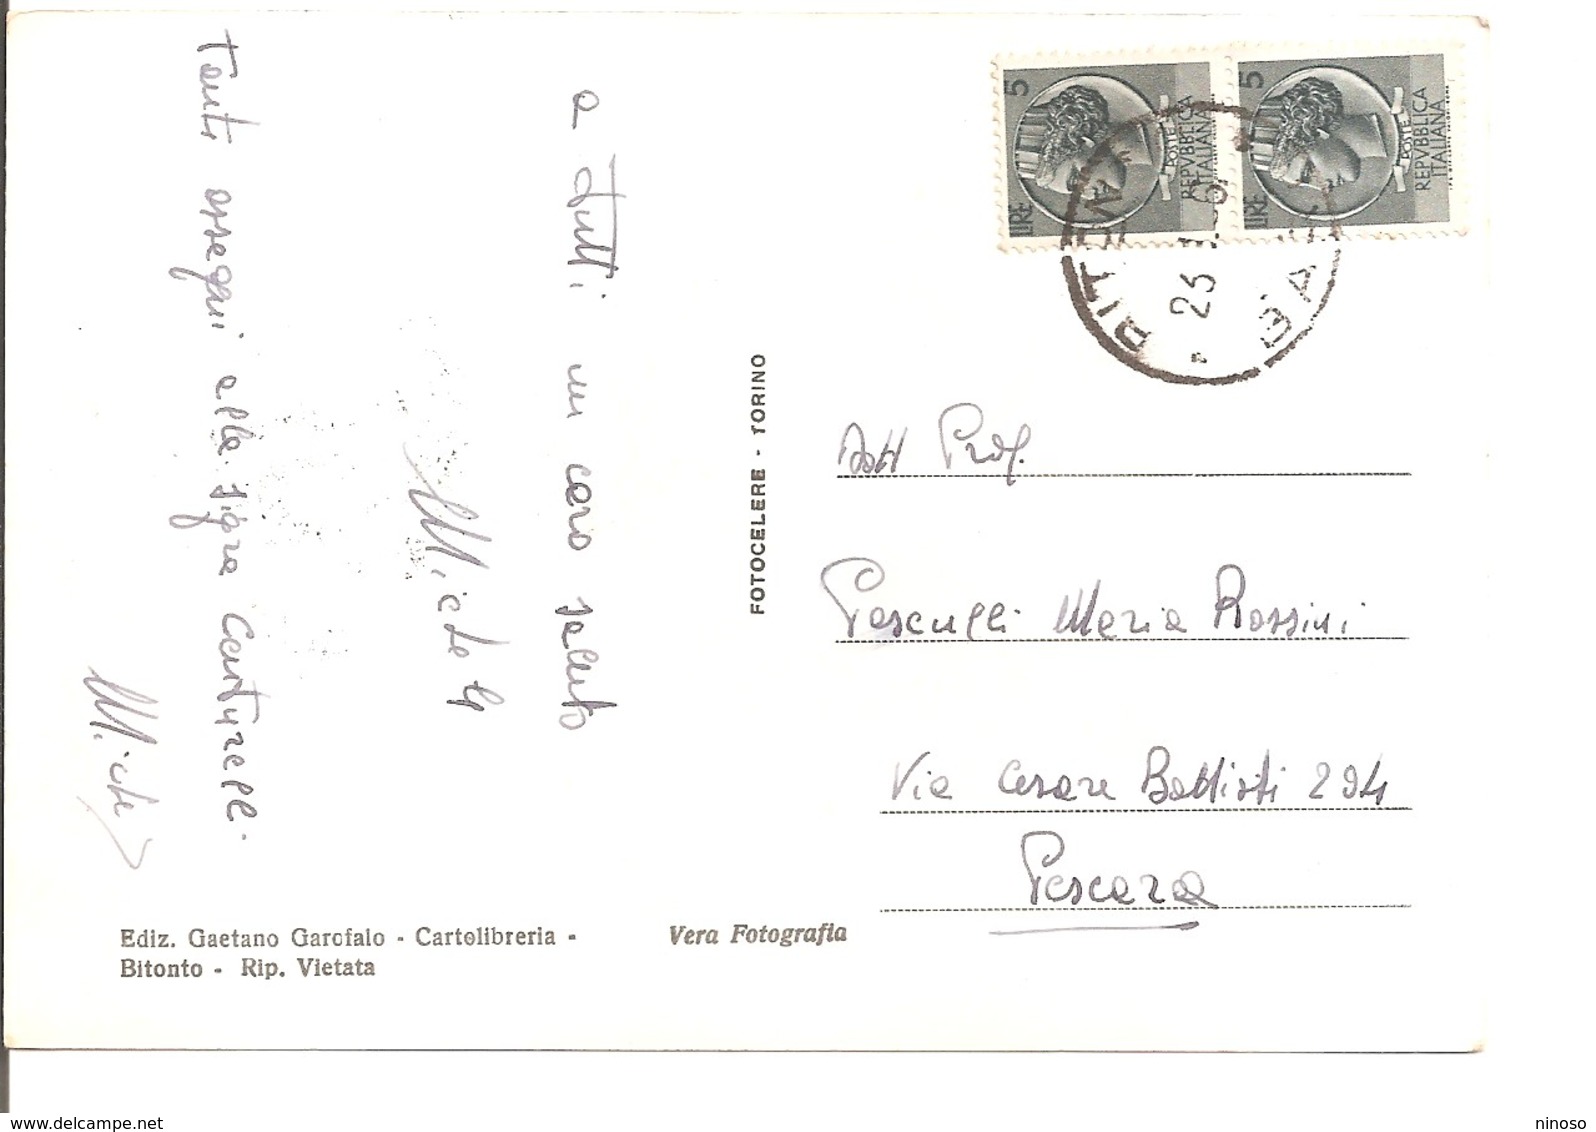 a tutti un caro saluto
Michele
Tanti ossequi alla sig.ra Canturelli.
Michele
FOTOCELERE - TORINO
5 LIRE
POSTE
REPVBBLICA
ITALIANA
5 LIRE
POSTE
REPVBBLICA
ITALIANA
26
BA
Dott Prof.
Pesculli Maria Rossini
Via Cesare Battisti 294
Pescara
Ediz. Gaetano Garofalo - Cartolibreria -
Bitonto - Rip. Vietata
Vera Fotografia
www.delcampe.net
ninoso